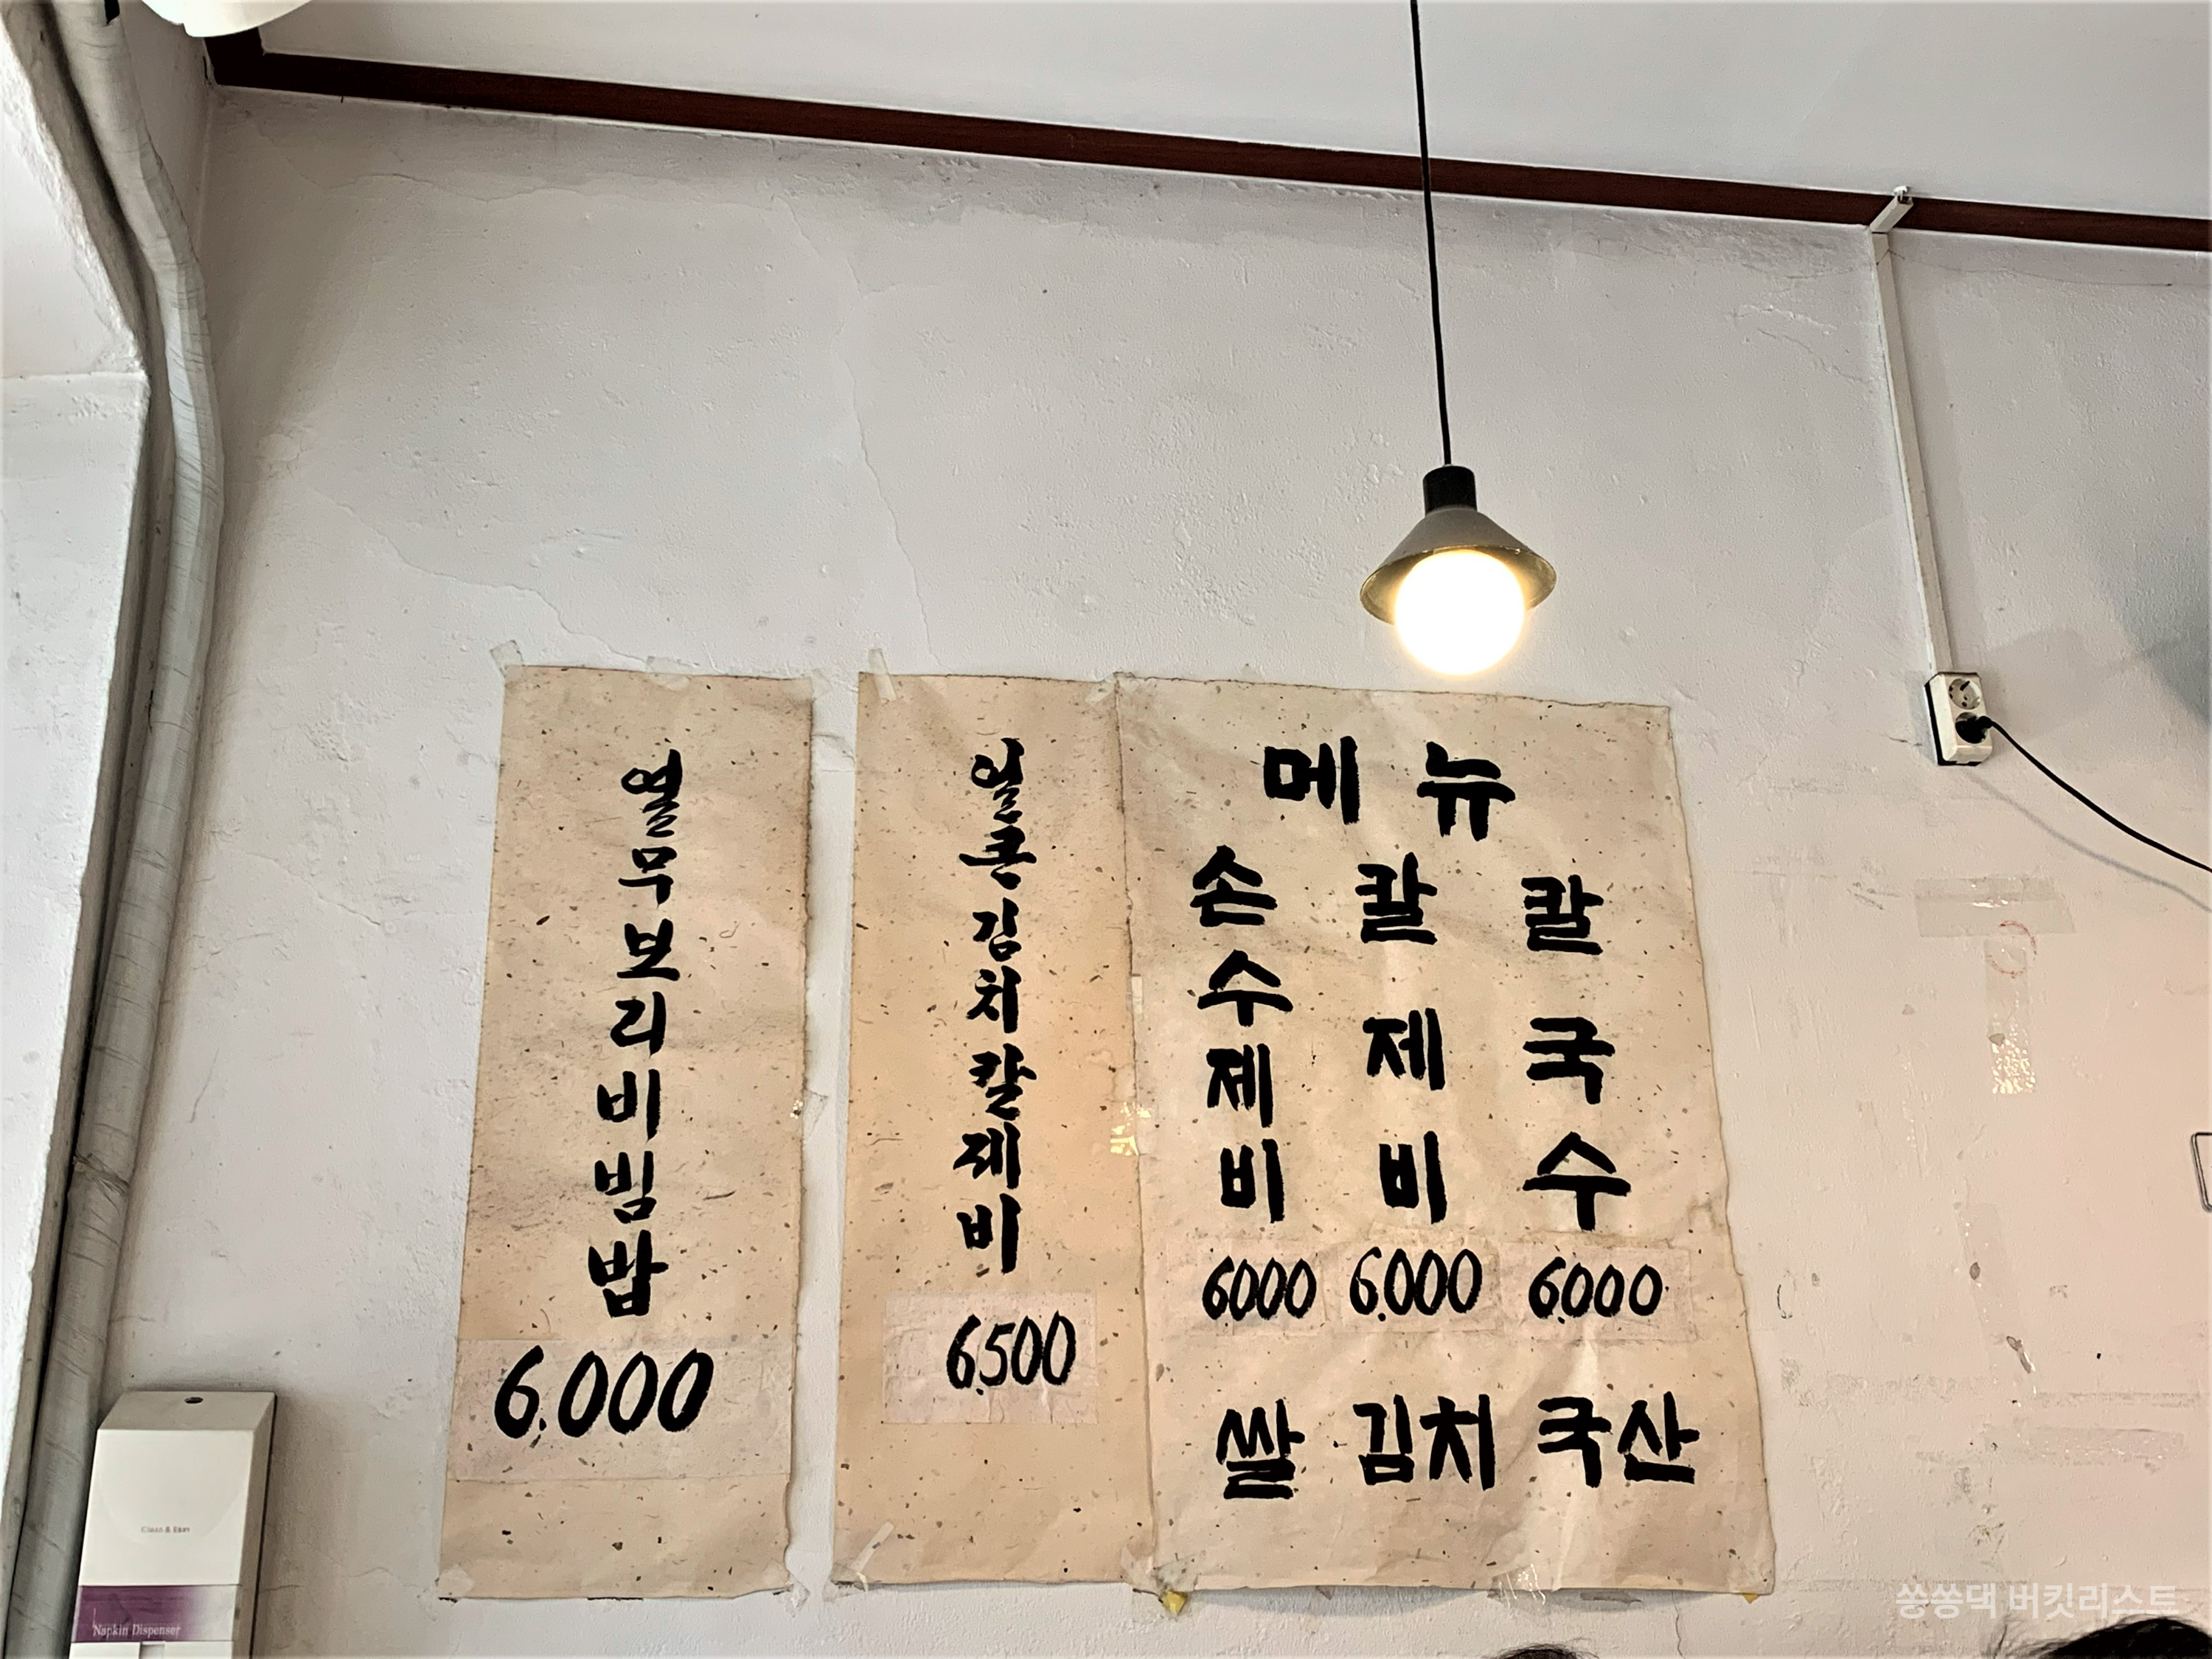 열무보리비빔밥
6.000
얼큰김치칼제비
6.500
메뉴
손수제비
6000
칼제비
6.000
칼국수
6.000
쌀 김치 국산
Clean & Easy
Napkin Dispenser
쏭쏭댁 버킷리스트